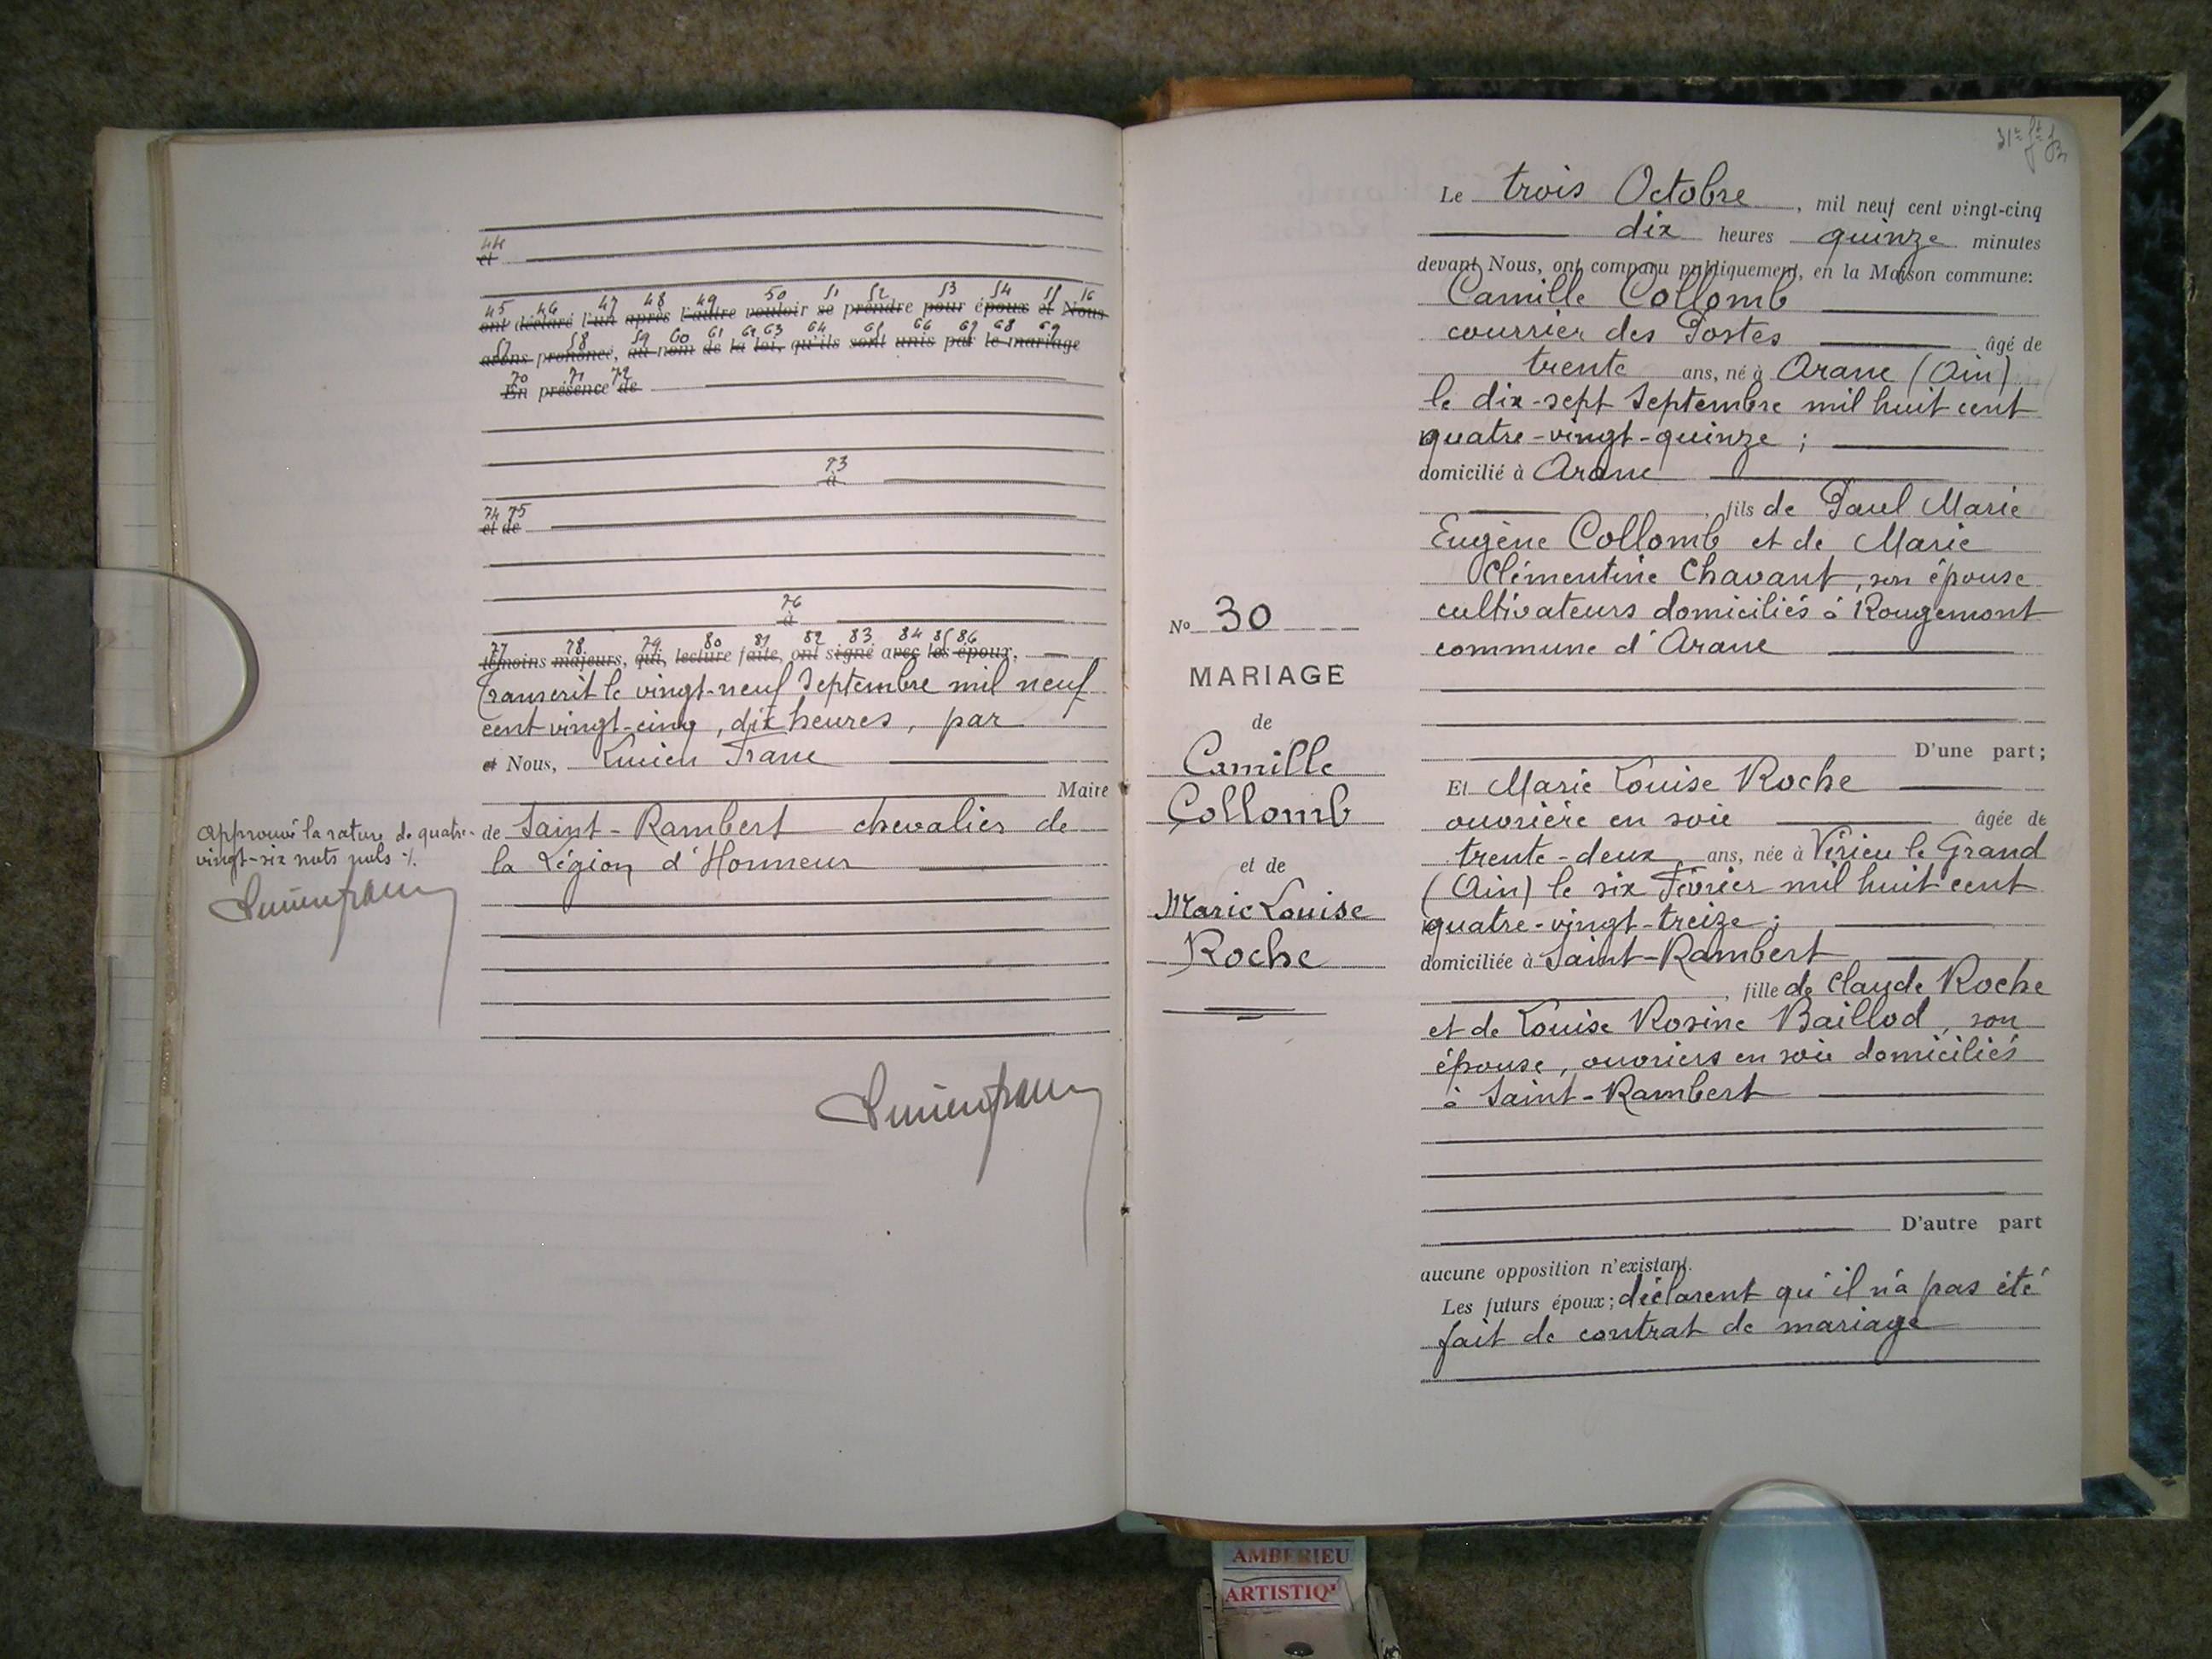 44
et
45 46 47 48 49 50 51 52 53 54 55 56
ont déclaré l'un après l'autre vouloir se prendre pour époux et Nous
57 58 59 60 61 62 63 64 65 66 67 68 69
avons prononcé, au nom de la loi, qu'ils sont unis par le mariage
70 71 72
En présence de
73
à
74 75
et de
76
à
77 78 79 80 81 82 83 84 85 86
témoins majeurs, qui, lecture faite, ont signé avec les époux,
Transcrit le vingt-neuf Septembre mil neuf
cent vingt-cinq, dix heures, par
et Nous, Lucien Franc
Maire
de Saint-Rambert chevalier de
la Légion d'Honneur
Approuvé la rature de quatre-
vingt-six mots nuls ./.
Lucien Franc
Lucien Franc
N° 30
MARIAGE
de
Camille
Collomb
et de
Marie Louise
Roche
Le trois Octobre, mil neuf cent vingt-cinq
dix heures quinze minutes
devant Nous, ont comparu publiquement, en la Maison commune:
Camille Collomb
courrier des Postes âgé de
trente ans, né à Aranc (Ain)
le dix-sept Septembre mil huit cent
quatre-vingt-quinze ;
domicilié à Aranc
, fils de Paul Marie
Eugène Collomb et de Marie
Clémentine Chavant, son épouse
cultivateurs domiciliés à Rougemont
commune d'Aranc
D'une part;
Et Marie Louise Roche
ouvrière en soie âgée de
trente-deux ans, née à Virieu le Grand
(Ain) le six Février mil huit cent
quatre-vingt-treize ;
domiciliée à Saint-Rambert
, fille de Claude Roche
et de Louise Rosine Baillod, son
épouse, ouvriers en soie domiciliés
à Saint-Rambert
D'autre part
aucune opposition n'existant.
Les futurs époux; déclarent qu'il n'a pas été
fait de contrat de mariage
AMBERIEU
ARTISTIQ